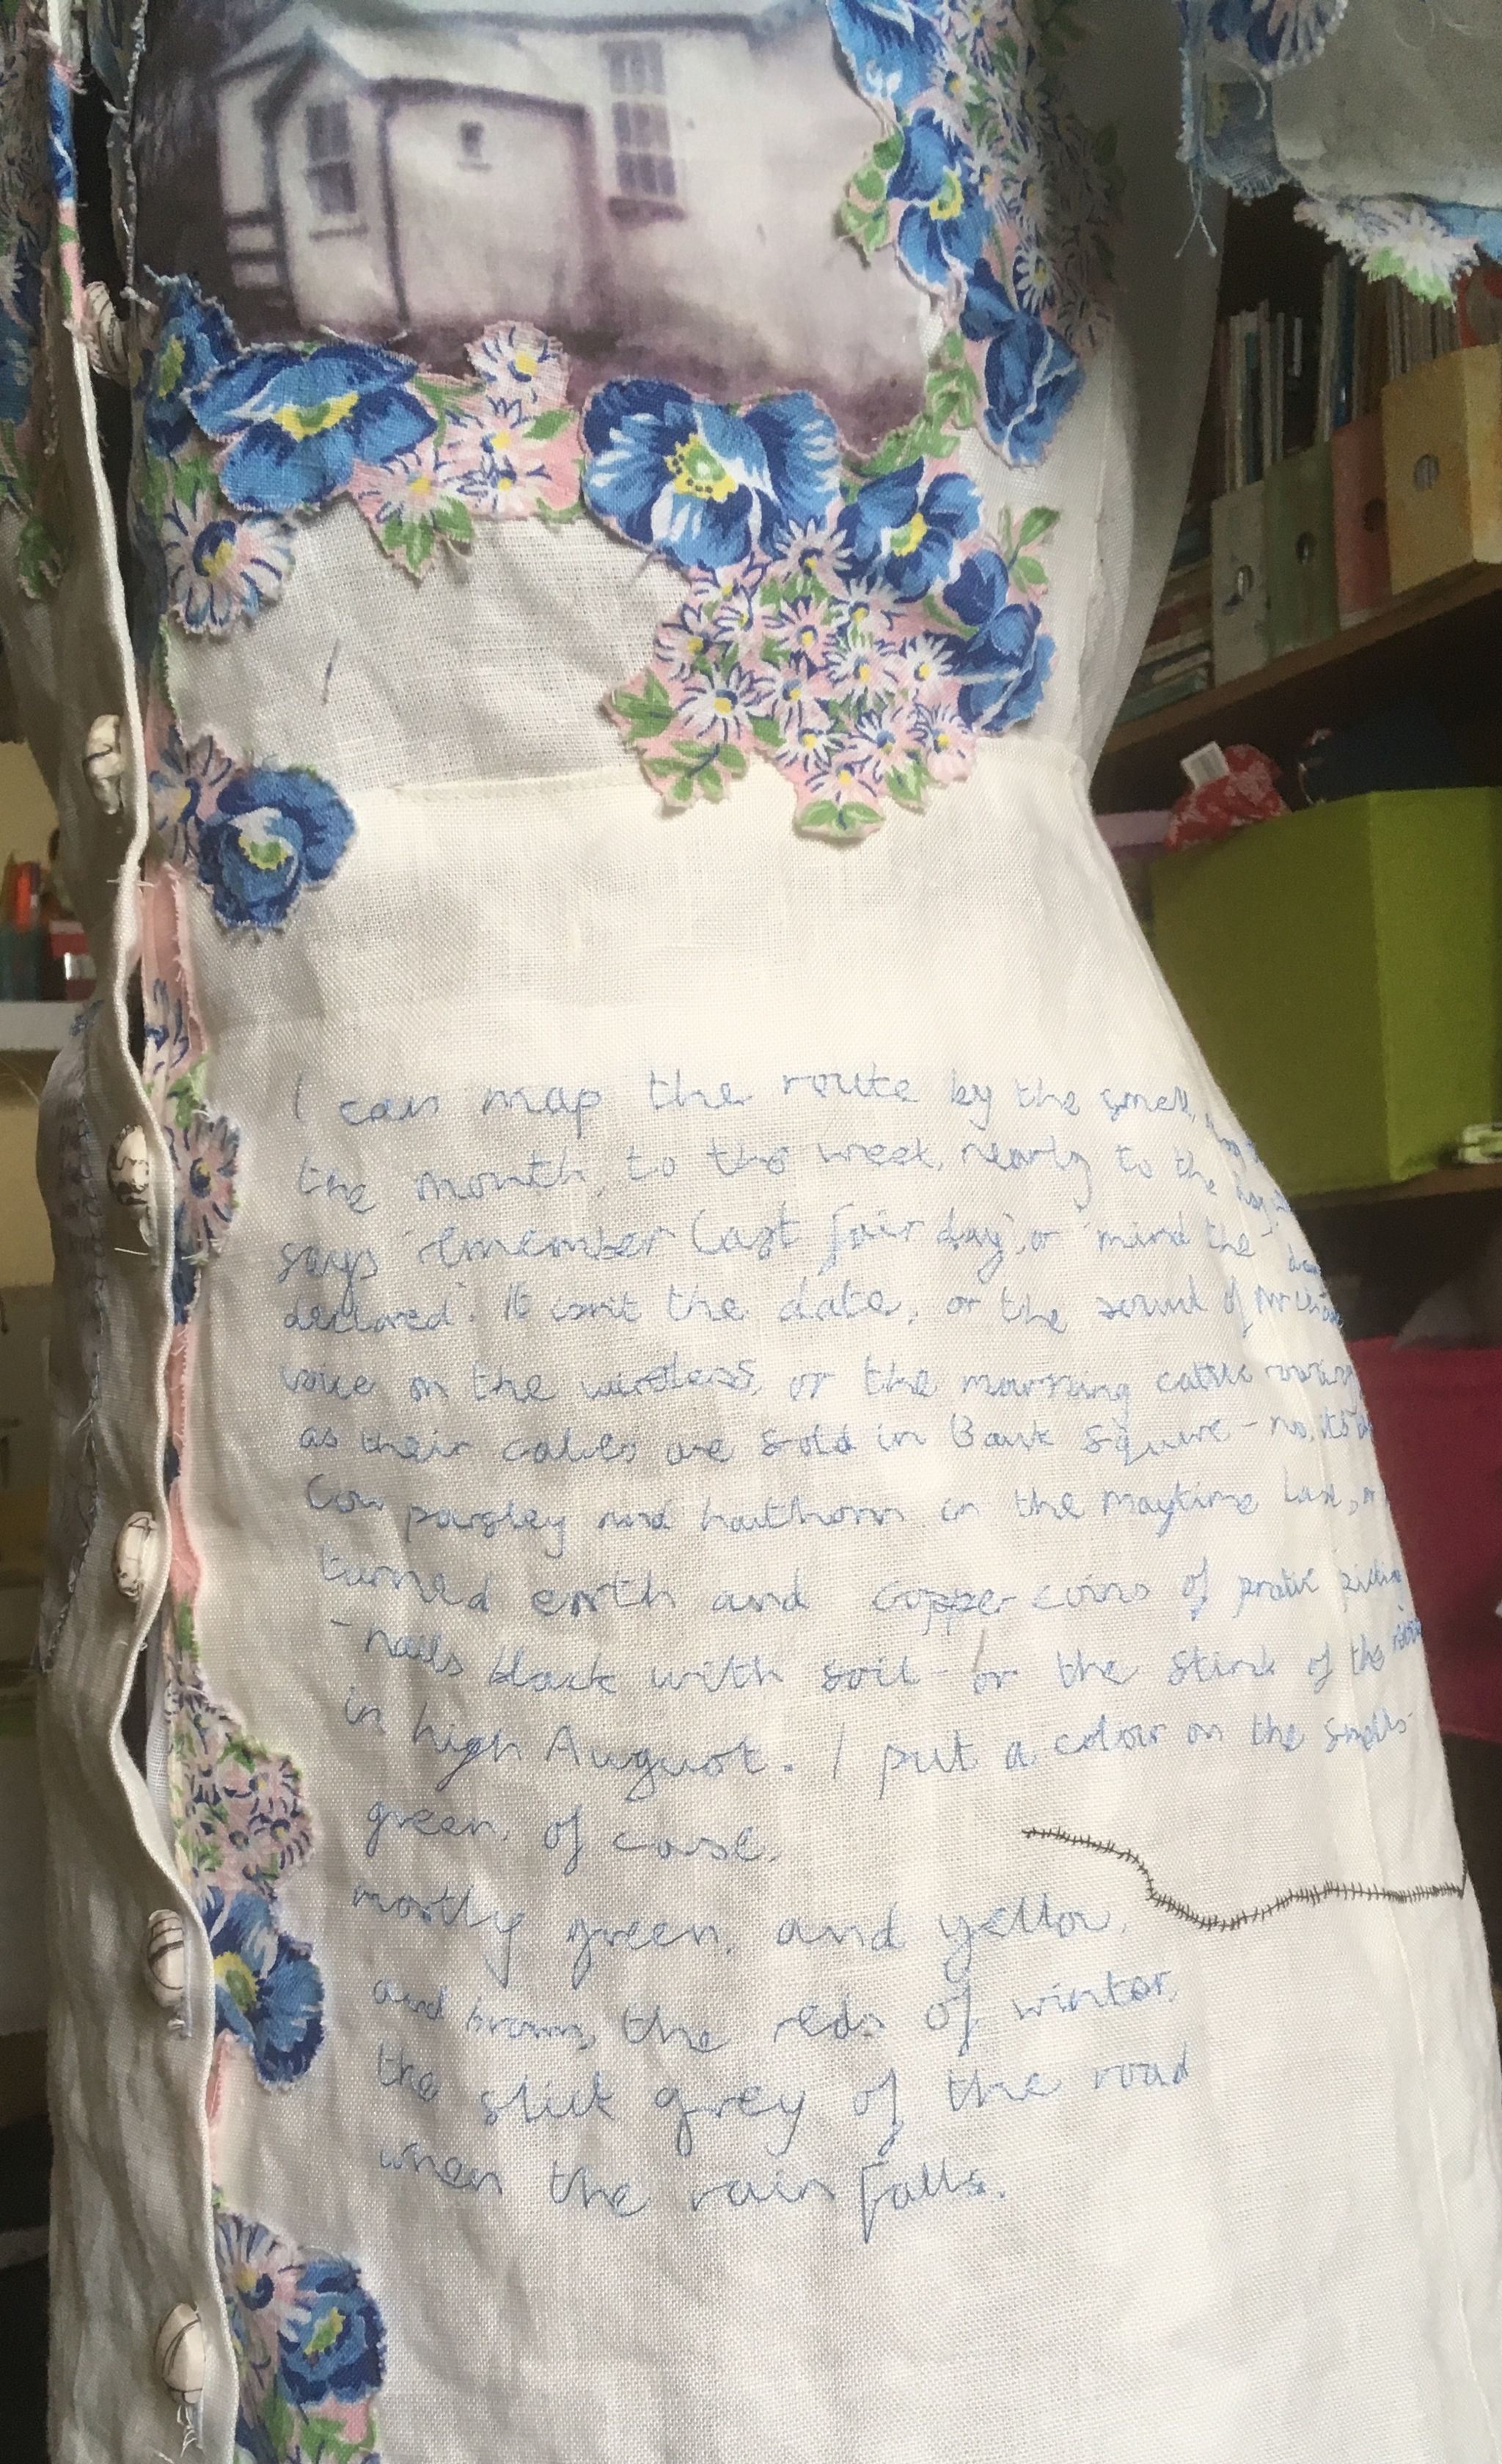 I can map the route by the smell,
the month, to the week, nearly to the
says 'remember last fair day', or 'mind the day
declared'. It isn't the date, or the sound of Mr
voice on the wireless, or the mourning cattle roaring
as their calves are sold in Bank Square - no, it's
Cow parsley and hawthorn in the maytime Lane, or
turned earth and copper coins of pratie picking
- nails black with soil - or the stink of the
in high August. I put a colour on the smells -
green, of course,
mostly green, and yellow,
and brown, the reds of winter,
the slick grey of the road
when the rain falls.